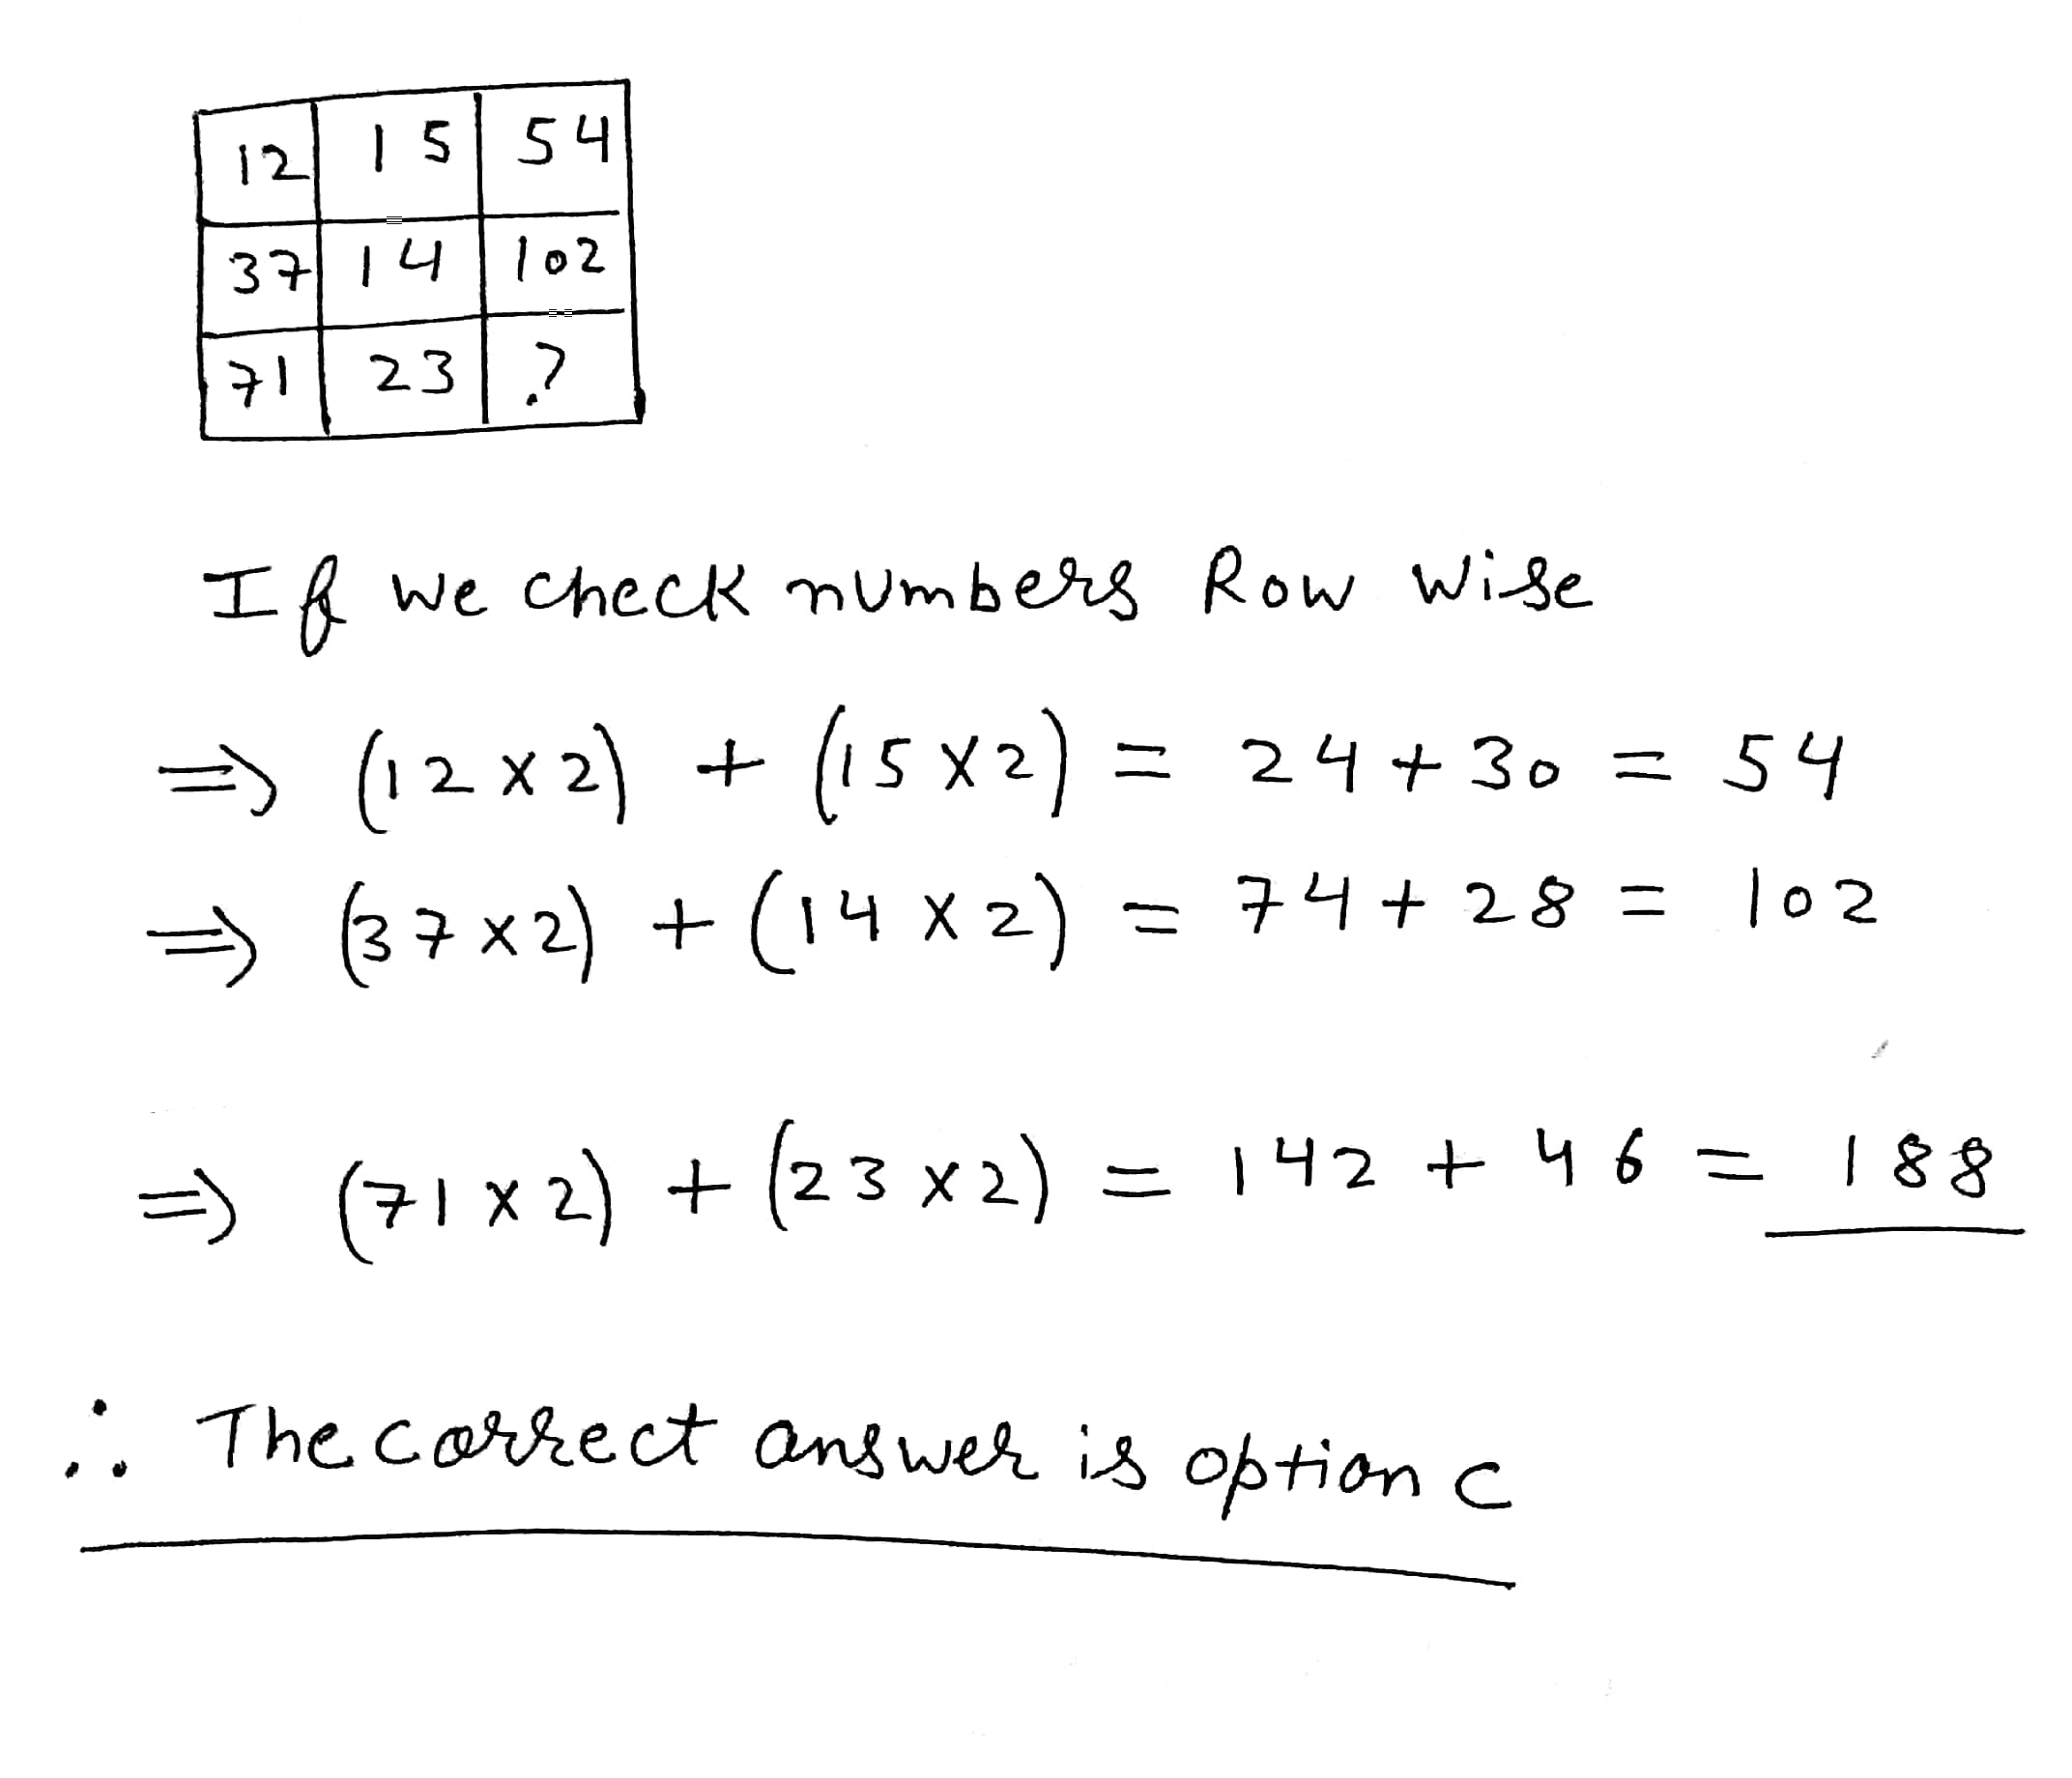 12 15 54
37 14 102
71 23 ?
If we check numbers Row wise
⇒ (12 x 2) + (15 x 2) = 24 + 30 = 54
⇒ (37 x 2) + (14 x 2) = 74 + 28 = 102
⇒ (71 x 2) + (23 x 2) = 142 + 46 = 188
∴ The correct answer is option c